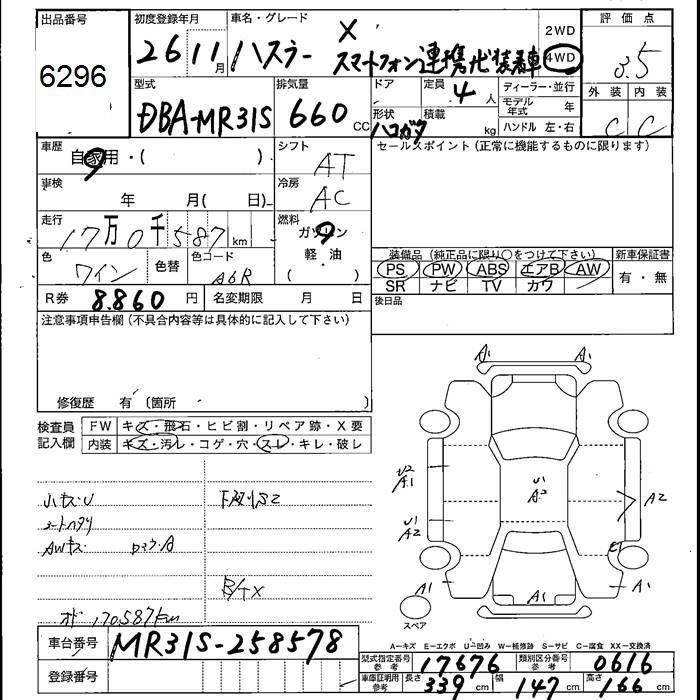 出品番号
6296
初度登録年月
26 11月
車名・グレード
ハスラー X
スマートフォン連携ナビ装着車
2WD
4WD
評価点
3.5
型式
DBA-MR31S
排気量
660 CC
ドア
形状
ハコガタ
定員
4人
積載
kg
ディーラー・並行
モデル年式 年
ハンドル 左・右
外装 内装
C C
車歴
自家用・( )
シフト
AT
セールスポイント (正常に機能するものに限ります)
車検
年 月( 日)
冷房
AC
走行
17万0千587km
燃料
ガソリン
軽油
( )
色
ワイン
色替
色コード
装備品 (純正品に限り○をつけて下さい)
新車保証書
PS PW ABS エアB AW
SR ナビ TV カワ
有・無
R券 8.860円
名変期限 月 日
後日品
注意事項申告欄 (不具合内容等は具体的に記入して下さい)
修復歴 有 〔箇所
検査員記入欄
FW キズ・飛石・ヒビ割・リペア跡・X要
内装 キズ・汚レ・コゲ・穴・スレ・キレ・破レ
小キズU
シートヘタリ
AWキズ
下廻りS2
170587km
A1 A1
U2
A1
U1
A2
U1
A2
A2
A1
A1
A1
スペア
車台番号
MR31S-258578
登録番号
A-キズ E-エクボ U-凹み W-補修跡 S-サビ C-腐食 XX-交換済
型式指定番号 参考 17676
類別区分番号 参考 0616
車庫証明用 参考 長さ 339cm 幅 147cm 高さ 166cm